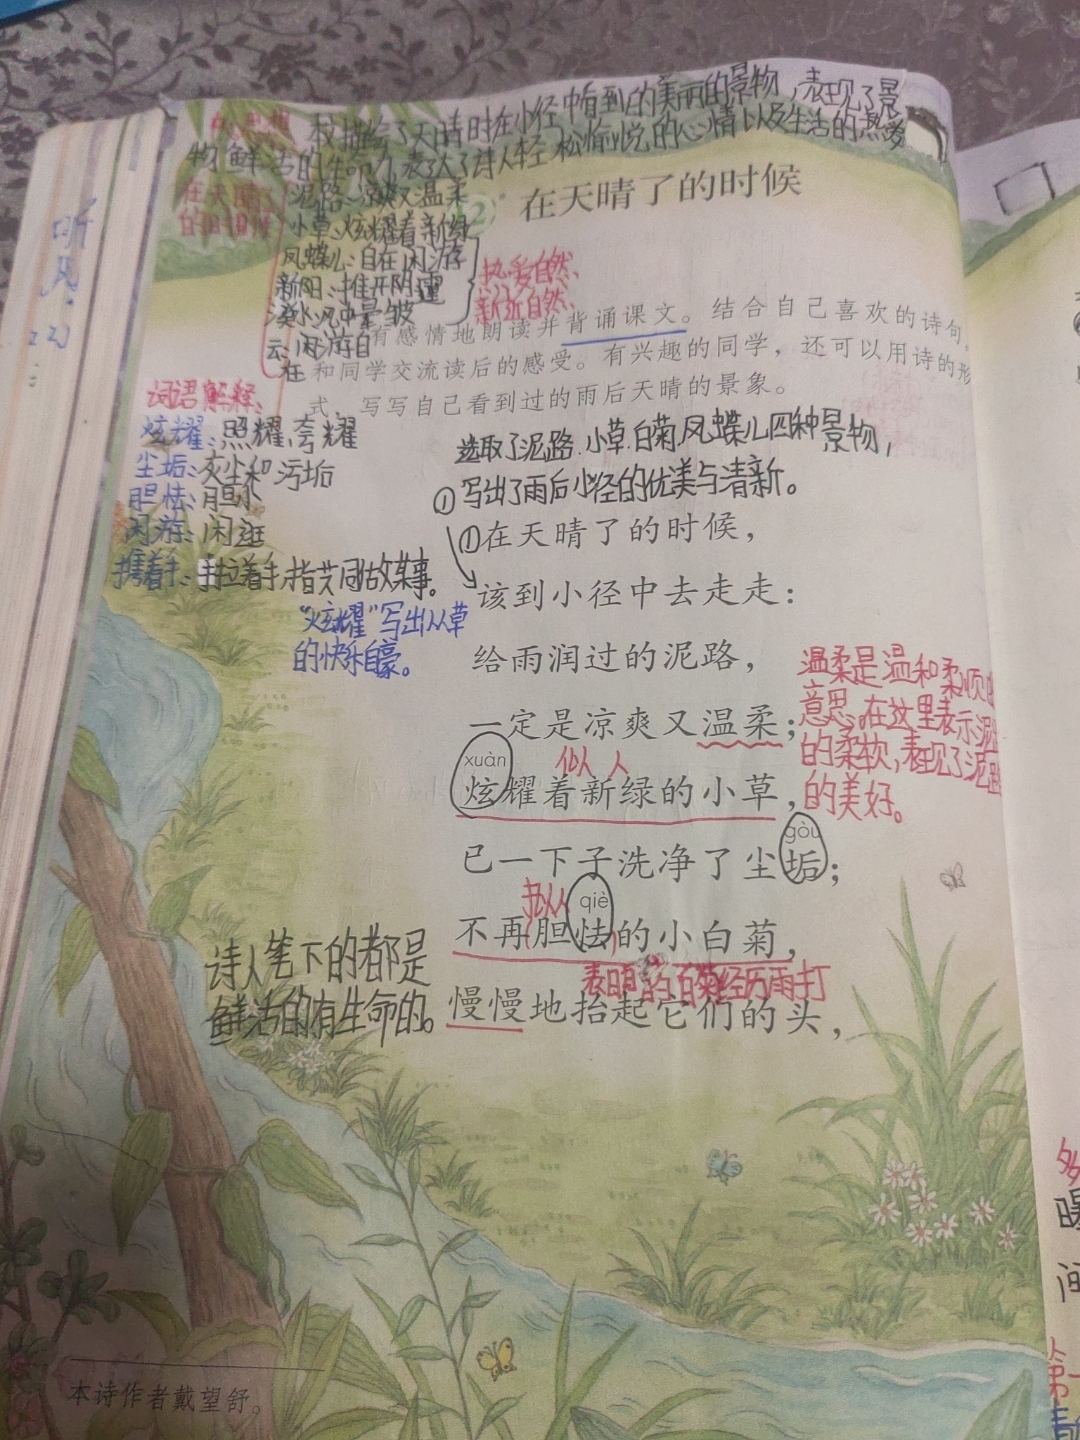 中心思想
本诗描绘了天晴时在小径中看到的美丽的景物，表现了景
物鲜活的生命力，表达了诗人轻松愉悦的心情以及生活的热爱
在天晴了
的时候
泥路：凉爽又温柔
小草：炫耀着新绿
凤蝶儿：自在闲游
新阳：推开阴霾
溪水：风中晕皱
云：闲游自
在
热爱自然、
亲近自然、
听
2 在天晴了的时候
有感情地朗读并背诵课文。结合自己喜欢的诗句，
和同学交流读后的感受。有兴趣的同学，还可以用诗的形
式，写写自己看到过的雨后天晴的景象。
词语解释：
炫耀：照耀，夸耀
尘垢：灰尘和污垢
胆怯：胆小
闲游：闲逛
携着手：手拉着手，指共同做某事。
选取了泥路.小草.白菊.凤蝶儿四种景物，
①写出了雨后小径的优美与清新。
①在天晴了的时候，
该到小径中去走走：
给雨润过的泥路，
一定是凉爽又温柔；
xuàn
炫耀着新绿的小草，
拟人
"炫耀"写出小草
的快乐自豪。
温柔是温和柔顺的
意思。在这里表示泥路
的柔软，表现了泥路
的美好。
gòu
已一下子洗净了尘垢；
拟人
qiè
不再胆怯的小白菊，
表明小白菊经历雨打
慢慢地抬起它们的头，
诗人笔下的都是
鲜活的有生命的。
本诗作者戴望舒。